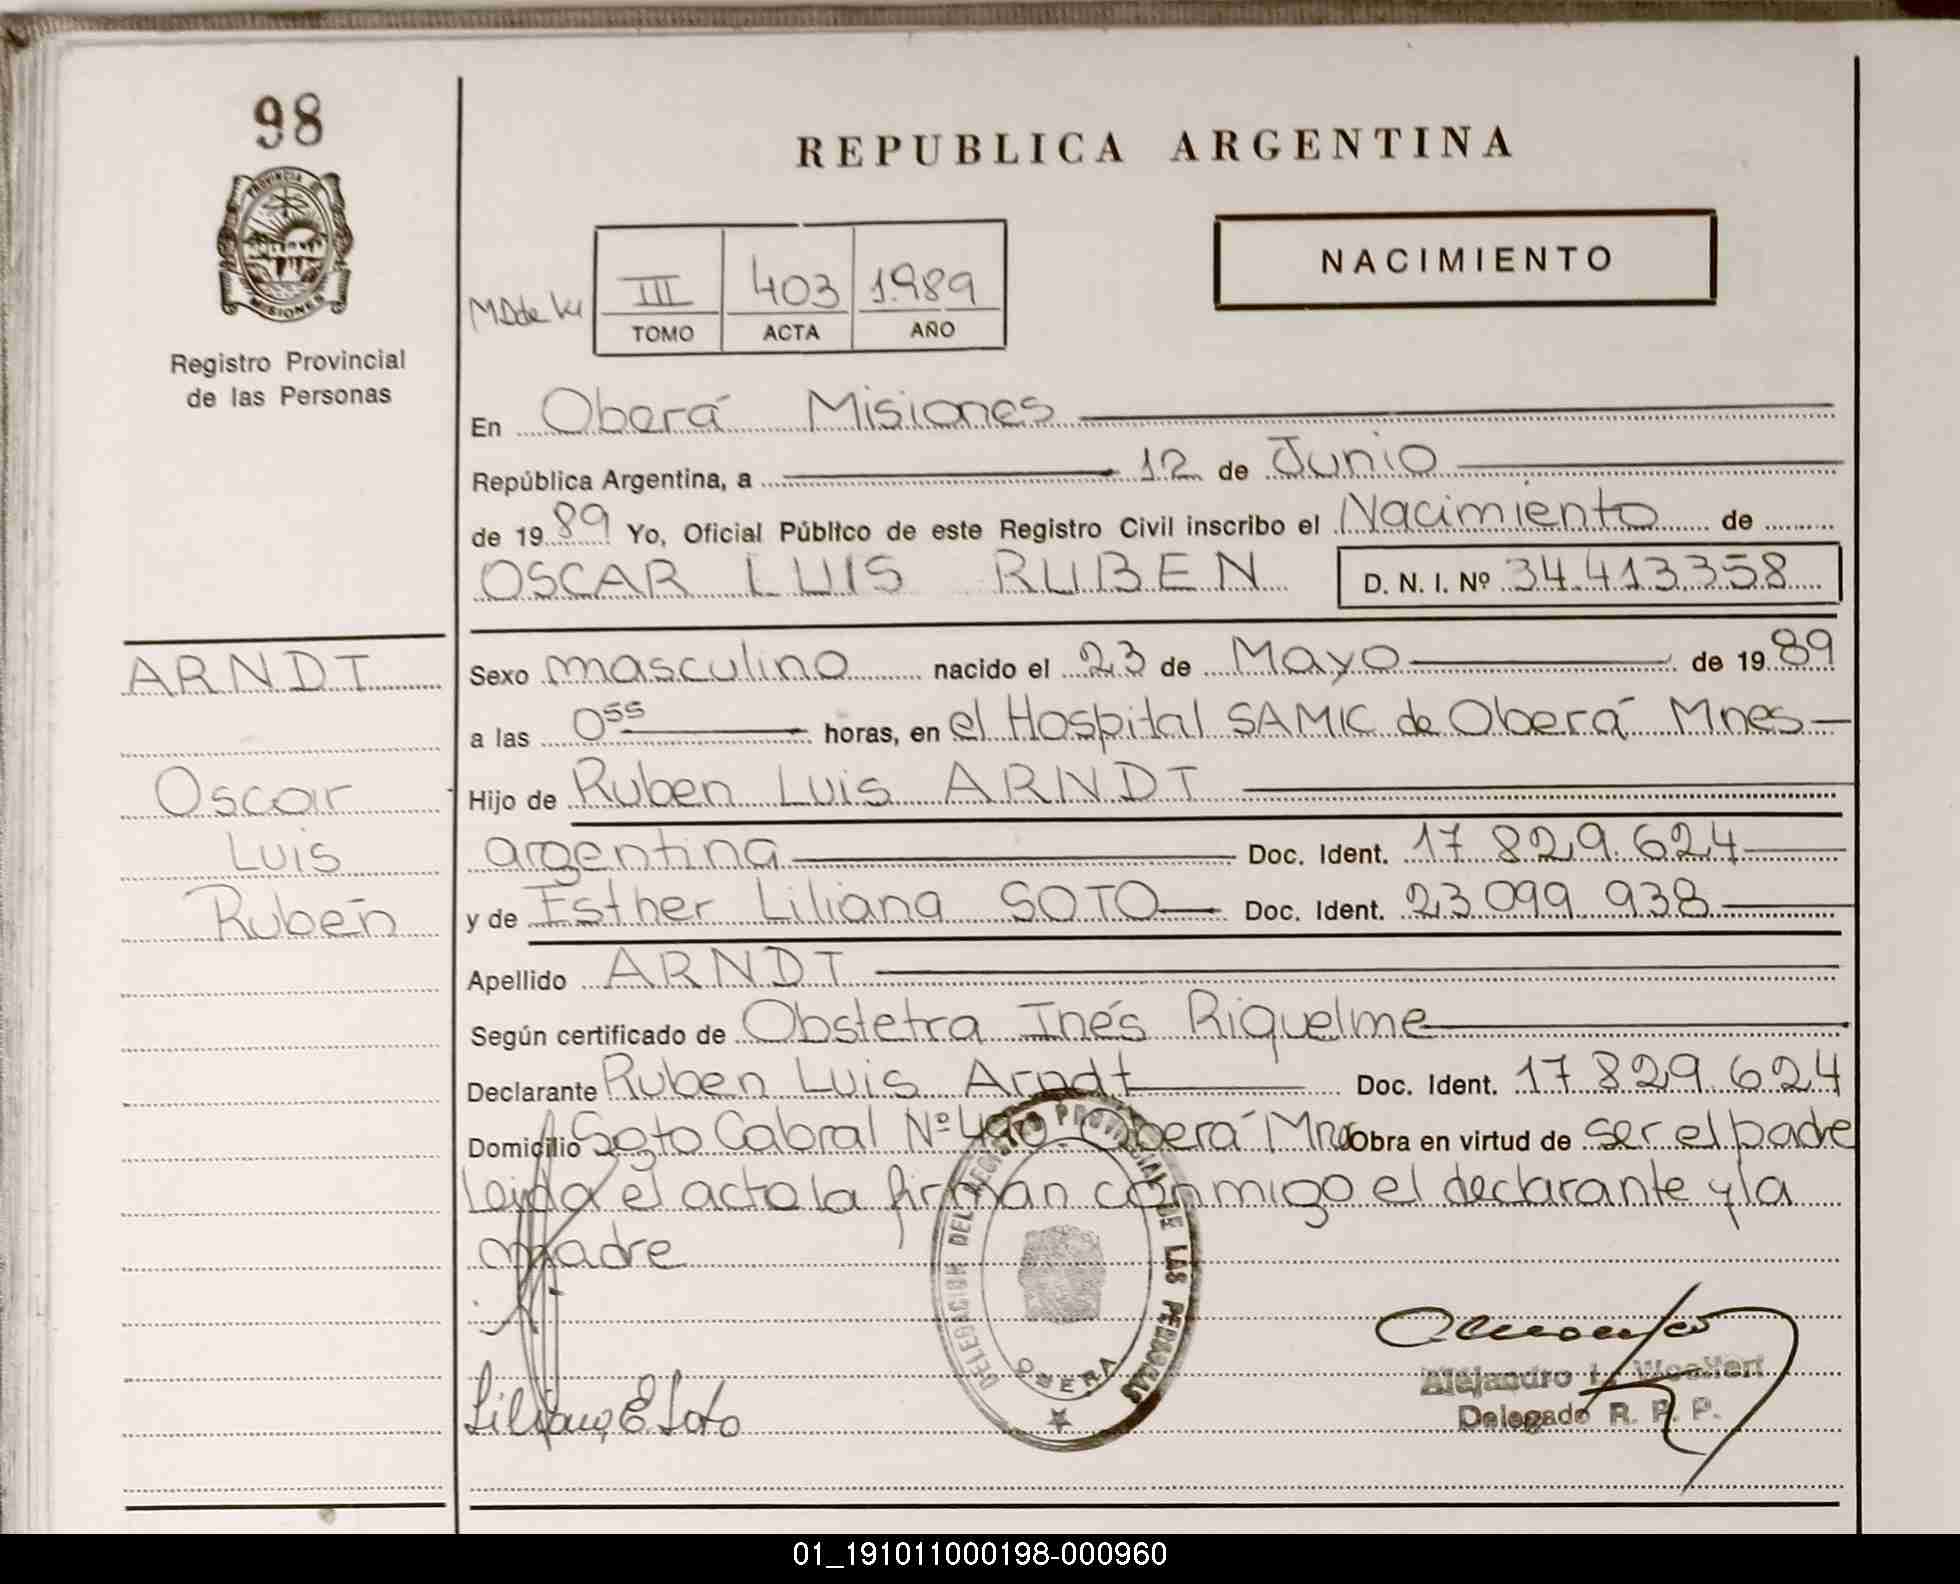 98
PROVINCIA DE
MISIONES
Registro Provincial
de las Personas
REPUBLICA ARGENTINA
NACIMIENTO
III 403 1989
TOMO ACTA AÑO
En Oberá Misiones
República Argentina, a 12 de Junio
de 1989 Yo, Oficial Público de este Registro Civil inscribo el Nacimiento de
OSCAR LUIS RUBEN D. N. I. Nº 34.413.358
ARNDT
Oscar
Luis
Rubén
Sexo masculino nacido el 23 de Mayo de 1989
a las 0⁵⁵ horas, en el Hospital SAMIC de Oberá Mnes
Hijo de Ruben Luis ARNDT
argentina Doc. Ident. 17 829.624
y de Esther Liliana SOTO Doc. Ident. 23 099 938
Apellido ARNDT
Según certificado de Obstetra Inés Riquelme
Declarante Ruben Luis Arndt Doc. Ident. 17 829 624
Domicilio Sgto Cabral Nº Oberá Mnes Obra en virtud de ser el padre
Leida el acta la firman conmigo el declarante y la
madre
DELEGACION DEL REGISTRO PROVINCIAL DE LAS PERSONAS
OBERA
Liliana E Soto
Alejandro L.
Delegado R. P. P.
01_191011000198-000960